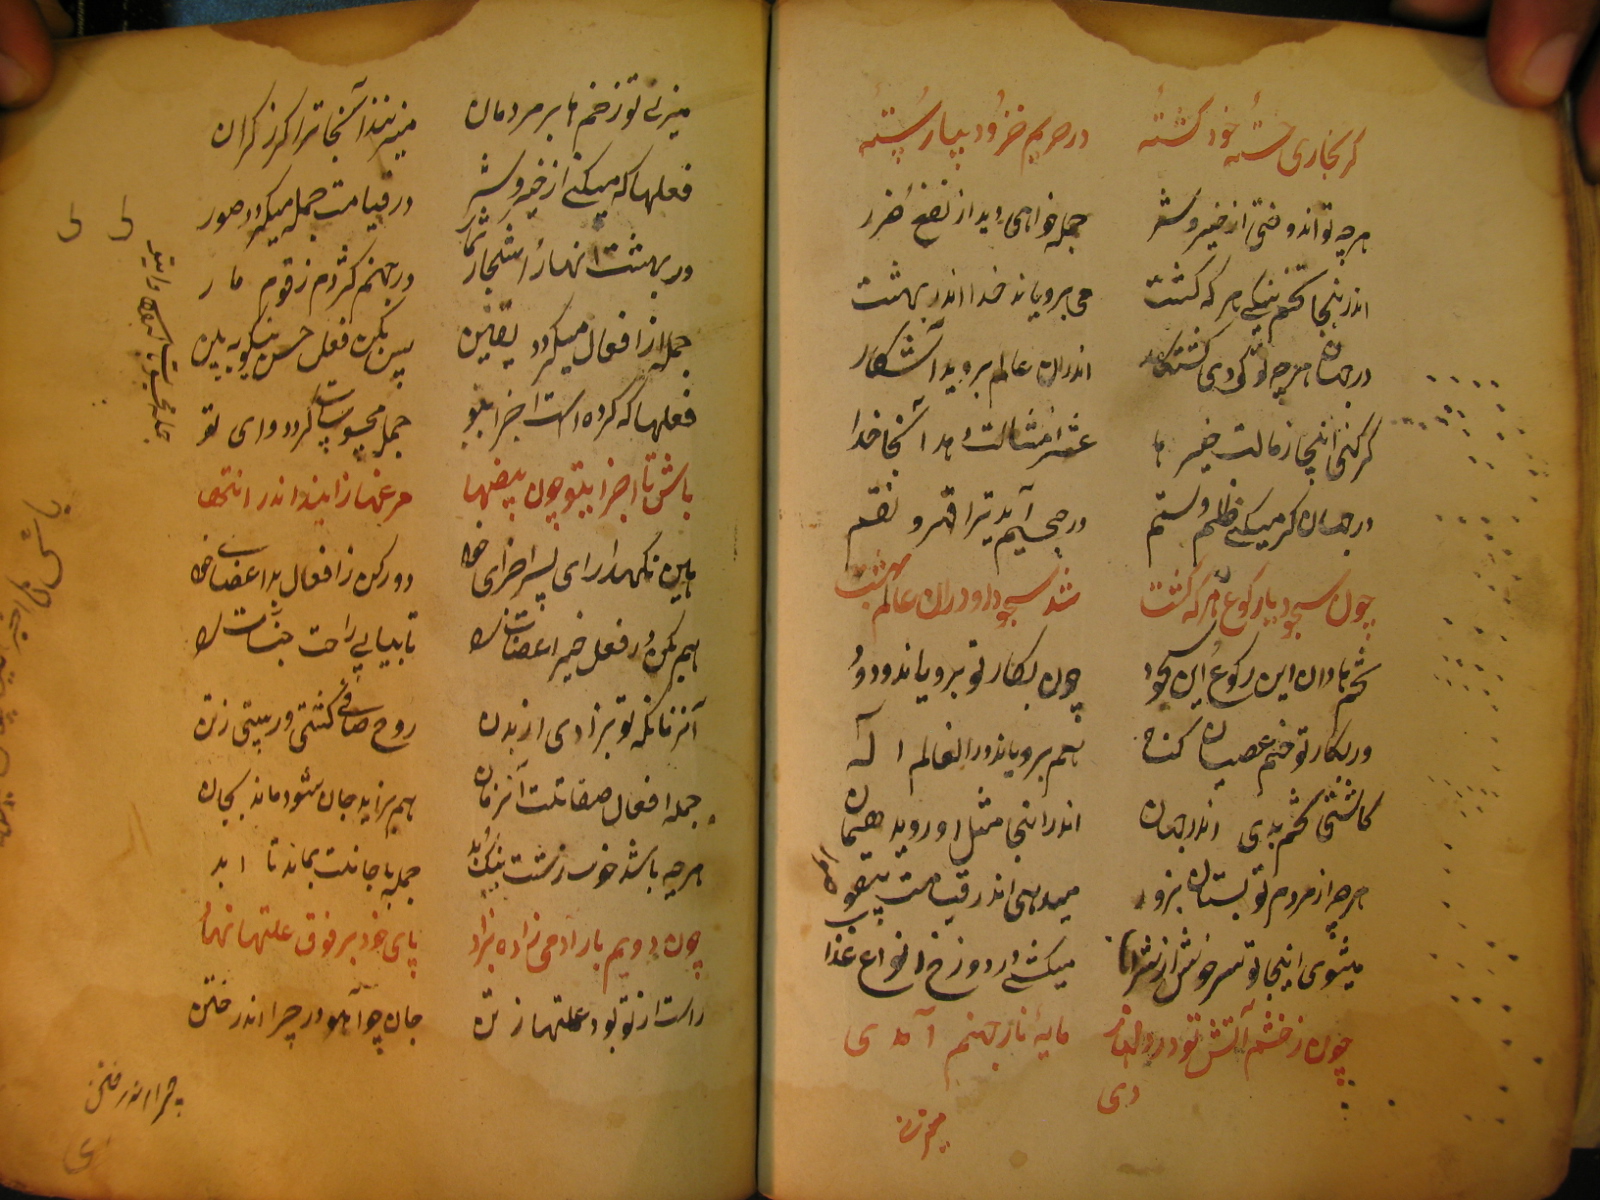 گر بخاری خسته خود کشته
در حریم خز و دیبا رشته
هرچه تو اندوختی از خیر و شر
جمله خواهی دید از نفع و ضرر
اندر ینجا تخم نیکی هر که کشت
می برویاند خدا اندر بهشت
در جهان هرچه تو کردی
اندران عالم بروید آشکار
گر کنی اینجا ز مالت خیرها
عشر امثالت دهد آنجا خدا
در جهان گر میکنی ظلم و ستم
در جحیم آید ترا قهر و نقم
چون سجود یا رکوع هر که کشت
شد سجود او در آن عالم بهشت
تخمها دان این رکوع این سجود
چون بکار تو برویاند ودود
ور بکار تو ختم عصیان کناه
هم برویاند در العالم اله
کاشتی تخم بدی اندر جهان
اندر اینجا مثل او روید همان
هرچه از مردم تو بستان بزور
میدهی اندر قیامت
میشوی اینجا تو سرخوش از شراب
میکشی در دوزخ انواع عذاب
چون ز خشم آتش تو در دلها زدی
مایهٔ نار جهنم آمدی
میزنی
میزنی تو زخم ها بر مردمان
میزنند آنجا ترا گرز گران
فعلها که میکنی از خیر و شر
در قیامت جمله میگردد صور
در بهشت انهار اشجار ثمار
در جهنم کژدم زقوم مار
جمله از افعال میگردد یقین
پس بکن فعل حسن نیکو ببین
فعلها که کرده است اجزا بتو
جمله محسوبست گردد وای تو
باش تا اجزا بتو چون بیضها
مرغها زایند اندر انتها
هین نگهدار ای پسر اجزای خود
دور کن ز افعال بد اعضای خود
هم بکن در فعل خیر اعضات را
تا بیابی راحت جنات را
آنزمانکه تو بزادی از بدن
روح صافی گشتی ورستی ز تن
جمله افعال صفاتت آنزمان
هم بزاید جان شود ماند بجان
هرچه باشد خوب زشت نیک بد
جمله با جانت بماند تا ابد
چون دویم بار آدمی زاده بزاد
پای خود بر فوق علتها نهاد
راست از تو بود علتها ز تن
جان چو آهو در چرا اندر ختن
چرا اندر ختن